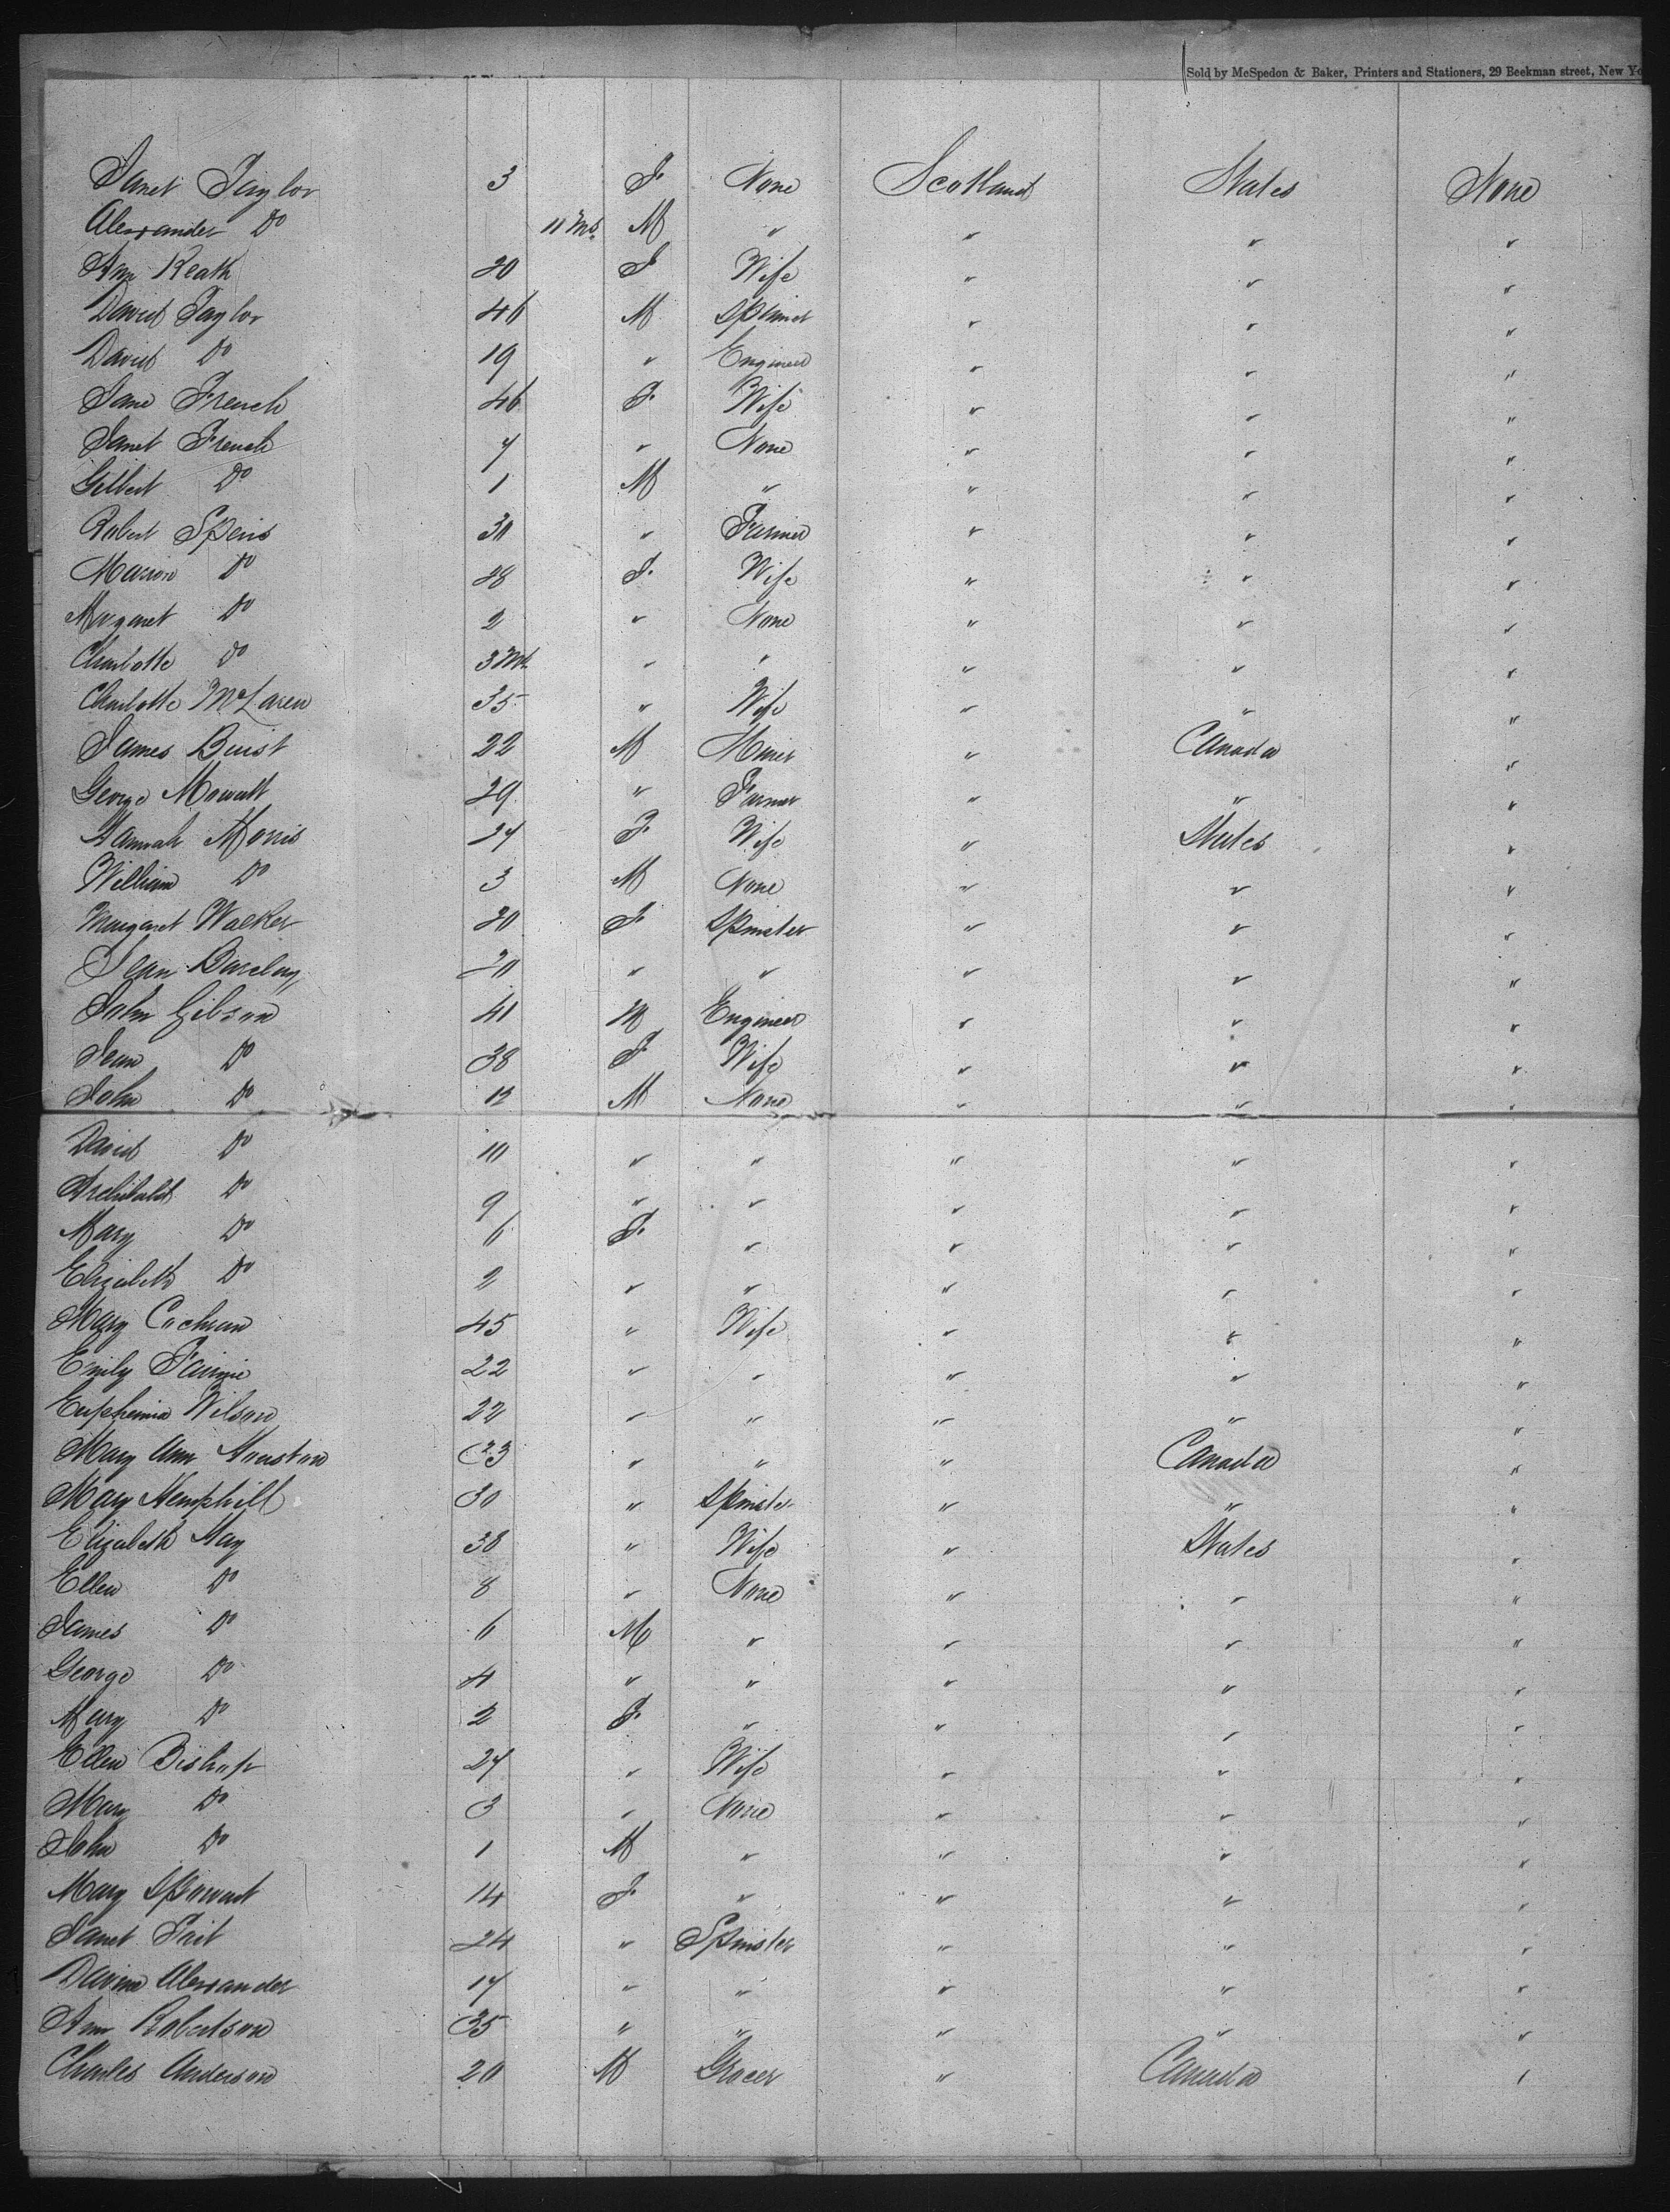 Sold by McSpedon & Baker, Printers and Stationers, 29 Beekman street, New Yo
Janet Taylor 3 F. None Scotland States None
Alexander Do 11 Ms. M " " " "
Ann Keath 20 F Wife " " "
David Taylor 46 M " " "
David Do 19 " Engineer " " "
Jane French 46 F. Wife " " "
Janet French 7 " None " " "
Gilbert Do 1 M " " " "
Robert Speirs 30 " Farmer " " "
Marion Do 28 F. Wife " " "
Margaret Do 2 " None " " "
Charlotte Do 3 Mts " " " " "
Charlotte McLaren 35 " Wife " " "
James Buist 22 M Miner " Canada "
George Mowatt 29 " Farmer " " "
Hannah Morris 27 F. Wife " States "
William Do 3 M None " " "
Margaret Walker 20 F. Spinster " " "
Jean Barclay 20 " " " " "
John Gibson 41 M Engineer " " "
Jean Do 38 F Wife " " "
John Do 12 M None " " "
David Do 10 " " " " "
Archibald Do 9 " " " " "
Mary Do 6 F. " " " "
Elizabeth Do 2 " " " " "
Mary Cochran 45 " Wife " " "
Emily 22 " " " " "
Euphemia Wilson 22 " " " " "
Mary Ann Houston 23 " " " Canada "
Mary Hemphill 30 " Spinster " " "
Elizabeth May 30 " Wife " States "
Ellen Do 8 " None " " "
James Do 6 M " " " "
George Do 4 " " " " "
Mary Do 2 F. " " " "
Ellen Bishop 27 " Wife " " "
Mary Do 3 " None " " "
John Do 1 M " " " "
Mary 14 F. " " " "
Janet Tait 24 " Spinster " " "
Davina Alexander 17 " " " " "
Ann Robertson 35 " " " " "
Charles Anderson 20 M Grocer " Canada "